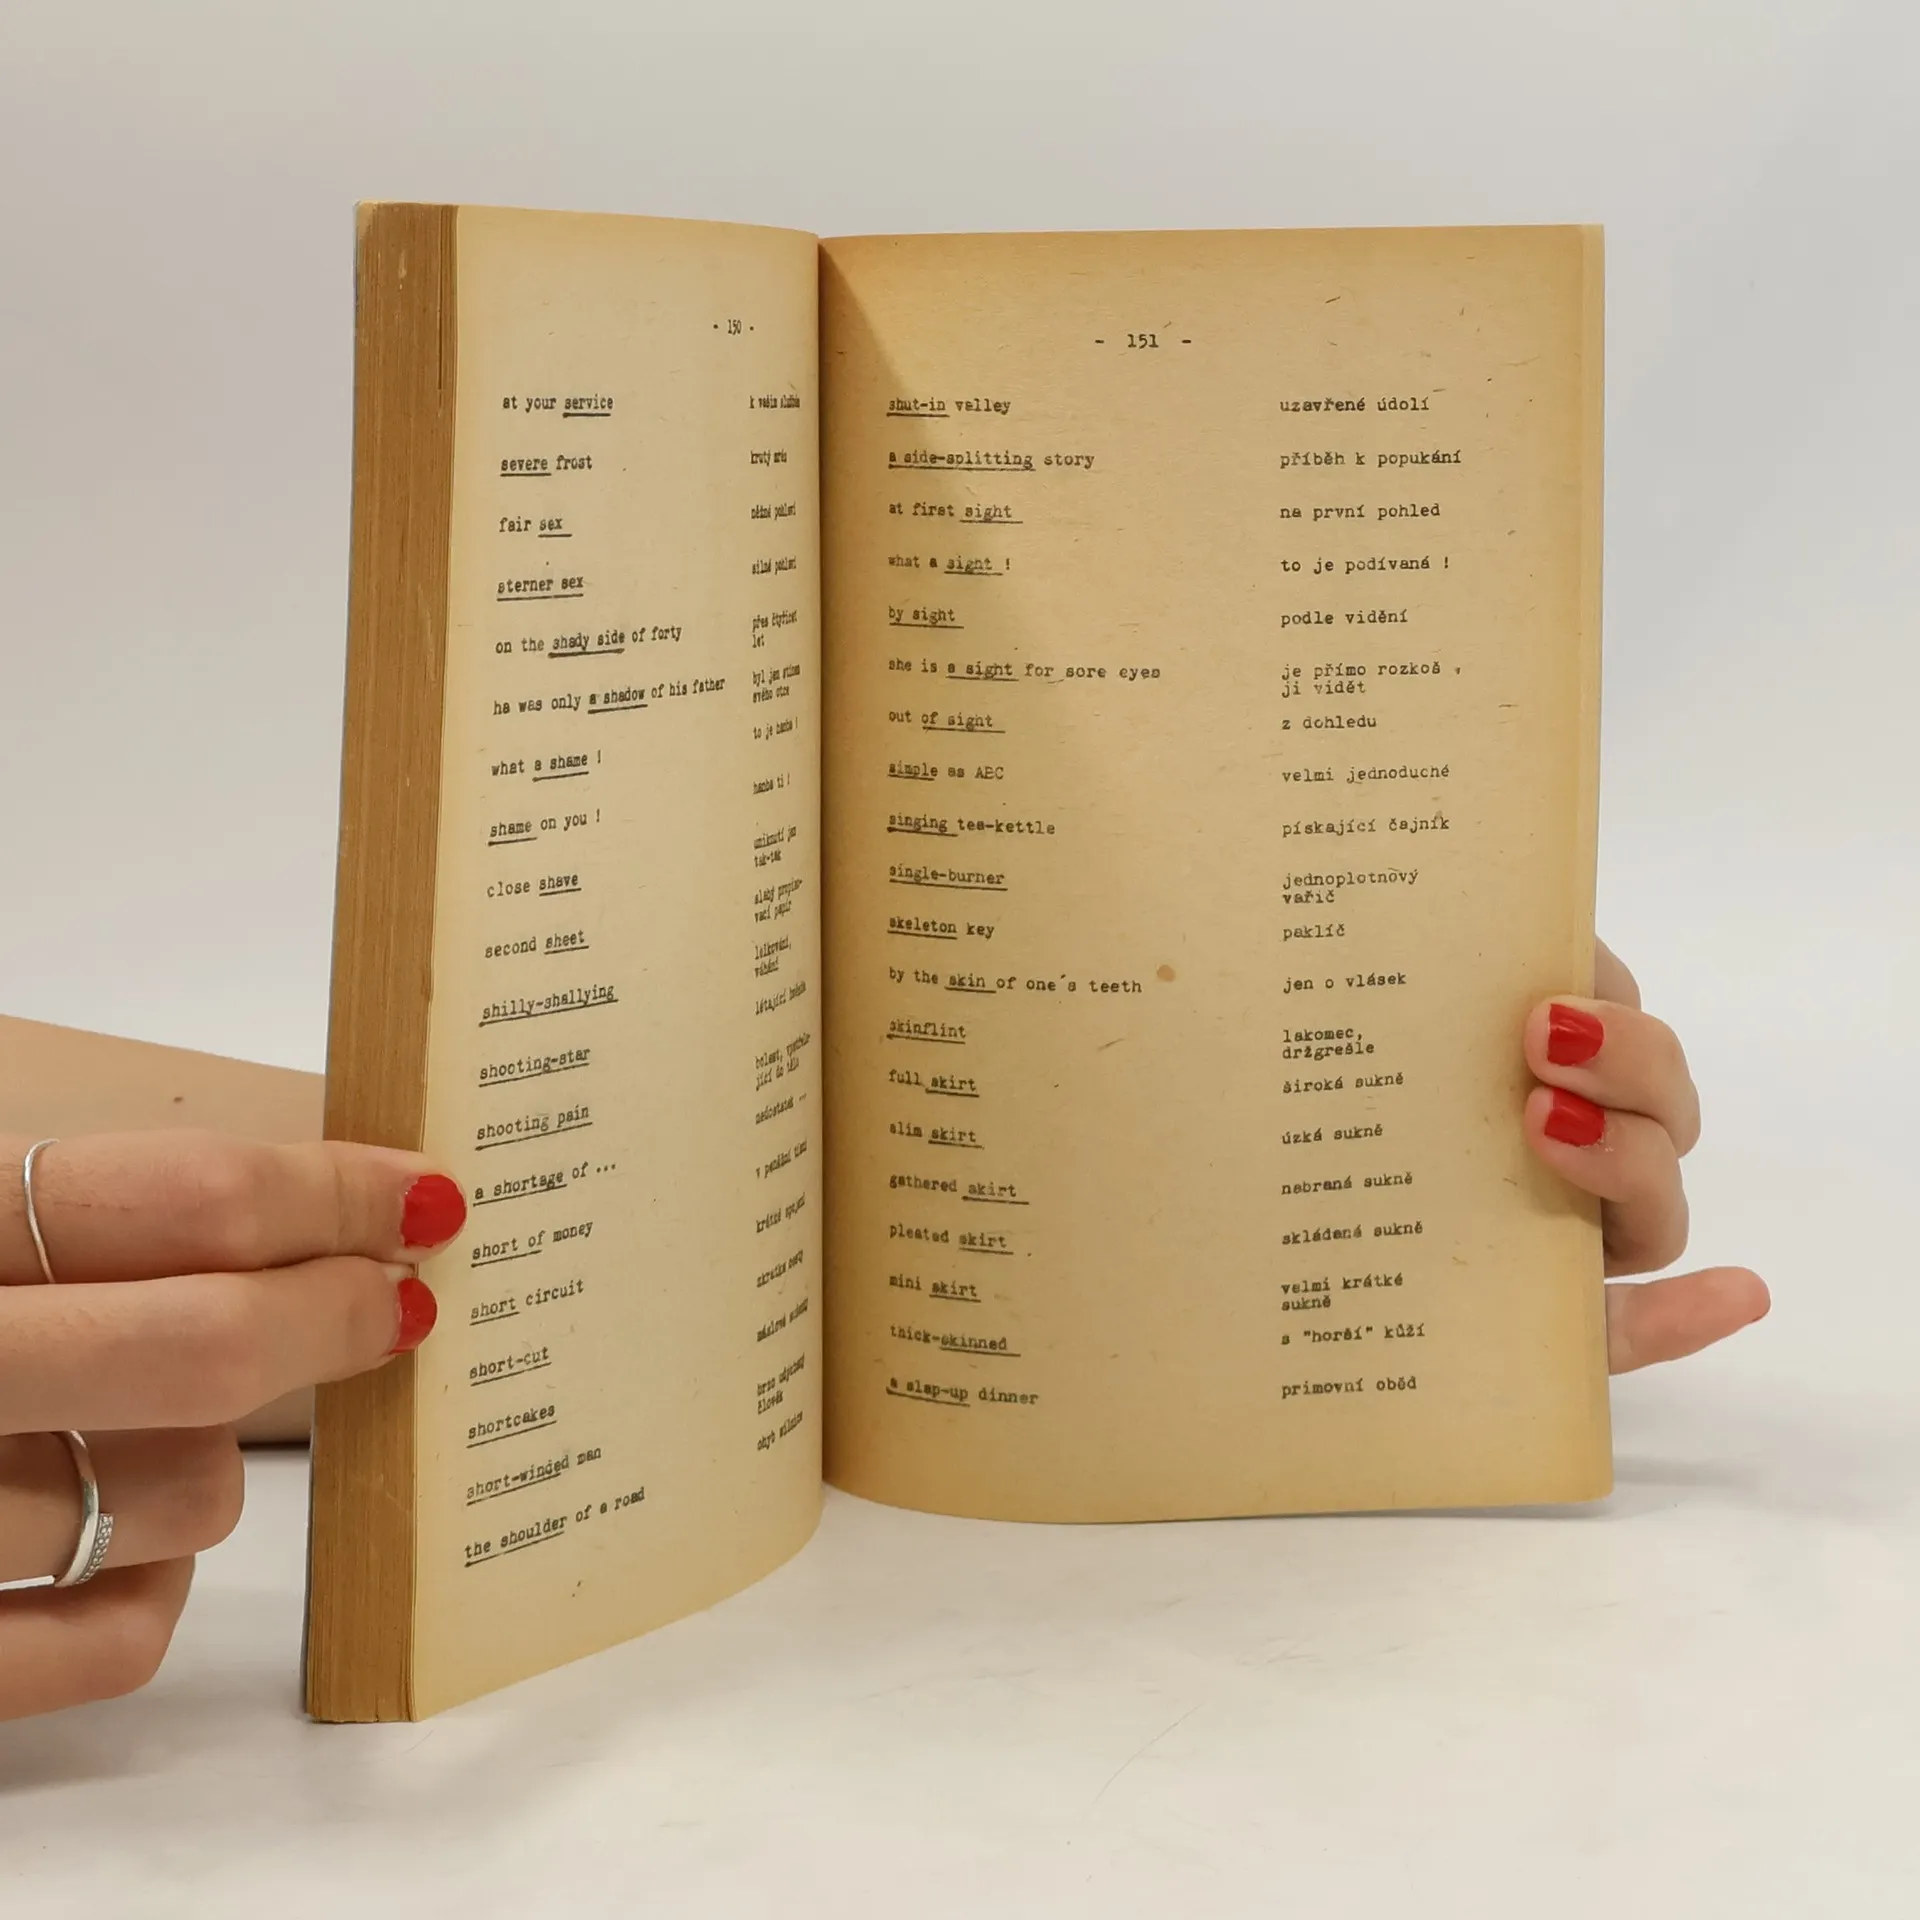 - 150 -
at your service k vašim službám
severe frost krutý mráz
fair sex něžné pohlaví
sterner sex silné pohlaví
on the shady side of forty přes čtyřicet
let
he was only a shadow of his father byl jen stínem
svého otce
what a shame ! to je hanba !
shame on you ! hanba ti !
close shave uniknutí jen
tak-tak
second sheet slabý propiso-
vací papír
shilly-shallying
váhání
shooting-star létající hvězda
shooting pain bolest, vystřelu-
jící do těla
a shortage of ... nedostatek ...
short of money v peněžní tísni
short circuit krátké spojení
short-cut zkratka cesty
shortcakes máslové sušenky
short-winded man
člověk
the shoulder of a road ohyb silnice
- 151 -
shut-in valley uzavřené údolí
a side-splitting story příběh k popukání
at first sight na první pohled
what a sight ! to je podívaná !
by sight podle vidění
she is a sight for sore eyes je přímo rozkoš
ji vidět
out of sight z dohledu
simple as ABC velmi jednoduché
singing tea-kettle pískající čajník
single-burner jednoplotnový
vařič
skeleton key paklíč
by the skin of one´s teeth jen o vlásek
skinflint lakomec,
držgrešle
full skirt široká sukně
slim skirt úzká sukně
gathered skirt nabraná sukně
pleated skirt skládaná sukně
mini skirt velmi krátké
sukně
thick-skinned s "horší" kůží
a slap-up dinner primovní oběd